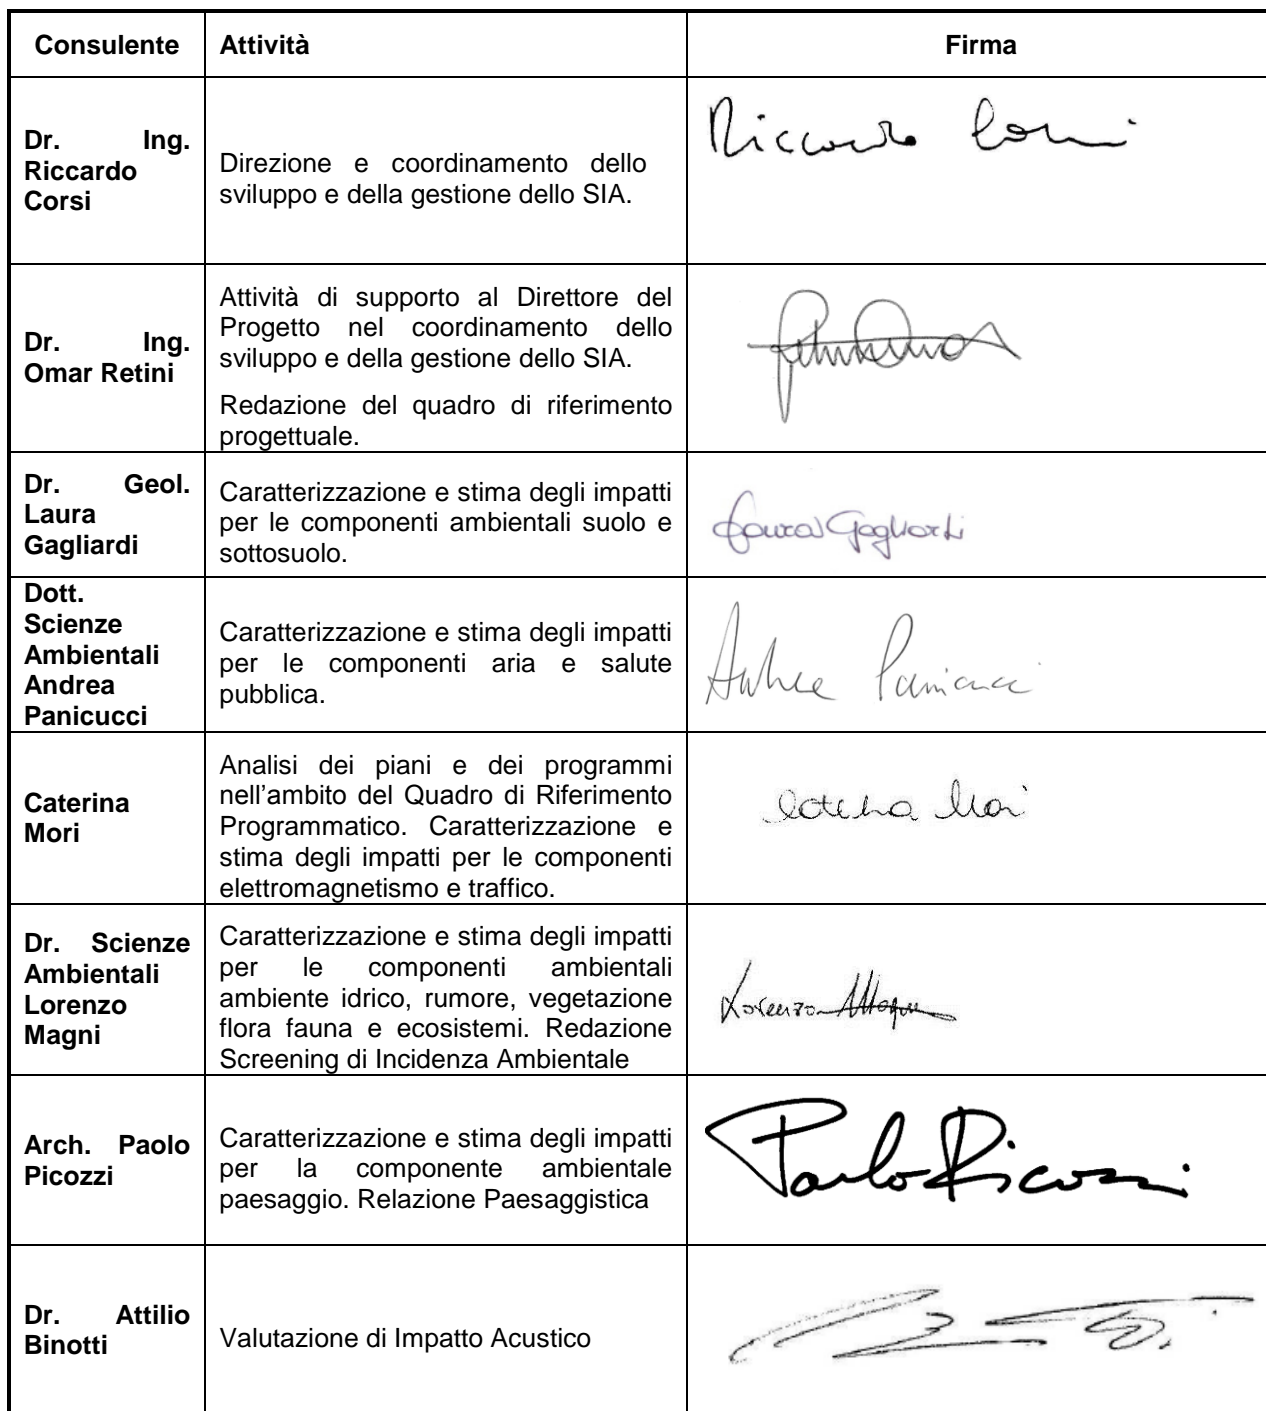 Consulente Attività Firma
Dr. Ing.
Riccardo
Corsi
Direzione e coordinamento dello
sviluppo e della gestione dello SIA.
Riccardo Corsi
Dr. Ing.
Omar Retini
Attività di supporto al Direttore del
Progetto nel coordinamento dello
sviluppo e della gestione dello SIA.
Redazione del quadro di riferimento
progettuale.
Dr. Geol.
Laura
Gagliardi
Caratterizzazione e stima degli impatti
per le componenti ambientali suolo e
sottosuolo.
Laura Gagliardi
Dott.
Scienze
Ambientali
Andrea
Panicucci
Caratterizzazione e stima degli impatti
per le componenti aria e salute
pubblica.
Andrea Panicucci
Caterina
Mori
Analisi dei piani e dei programmi
nell'ambito del Quadro di Riferimento
Programmatico. Caratterizzazione e
stima degli impatti per le componenti
elettromagnetismo e traffico.
Caterina Mori
Dr. Scienze
Ambientali
Lorenzo
Magni
Caratterizzazione e stima degli impatti
per le componenti ambientali
ambiente idrico, rumore, vegetazione
flora fauna e ecosistemi. Redazione
Screening di Incidenza Ambientale
Lorenzo Magni
Arch. Paolo
Picozzi
Caratterizzazione e stima degli impatti
per la componente ambientale
paesaggio. Relazione Paesaggistica
Paolo Picozzi
Dr. Attilio
Binotti
Valutazione di Impatto Acustico